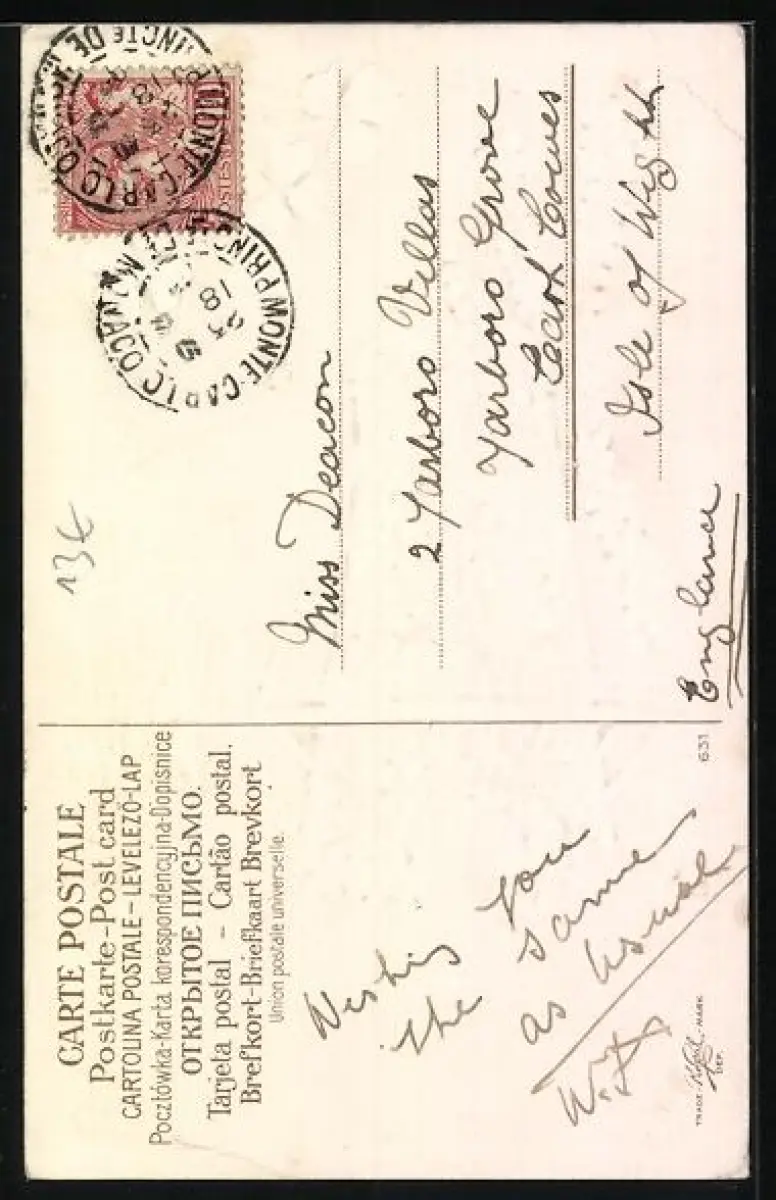 CARTE POSTALE
Postkarte-Post card
CARTOLINA POSTALE – LEVELEZŐ-LAP
Pocztówka-Karta korespondencyjna-Dopisnice
ОТКРЫТОЕ ПИСЬМО.
Tarjeta postal – Cartão postal.
Brefkort-Briefkaart Brevkort
Union postale universelle.
Wishing you
the same
as usual
TRADE MARK
DEP.
631
MONTE-CARLO
PRINCTE DE
MONTE-CARLO
PRINC
18
13€
Miss Deacon
2 Yarboro Villas
Yarboro Grove
East Cowes
Isle of Wight
England